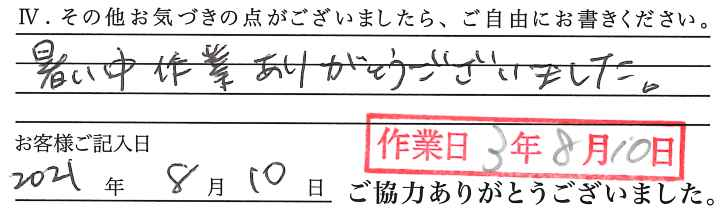 Ⅳ．その他お気づきの点がございましたら、ご自由にお書きください。
暑い中 作業ありがとうございました。
お客様ご記入日
作業日 3年8月10日
2021 年 8 月 10 日
ご協力ありがとうございました。